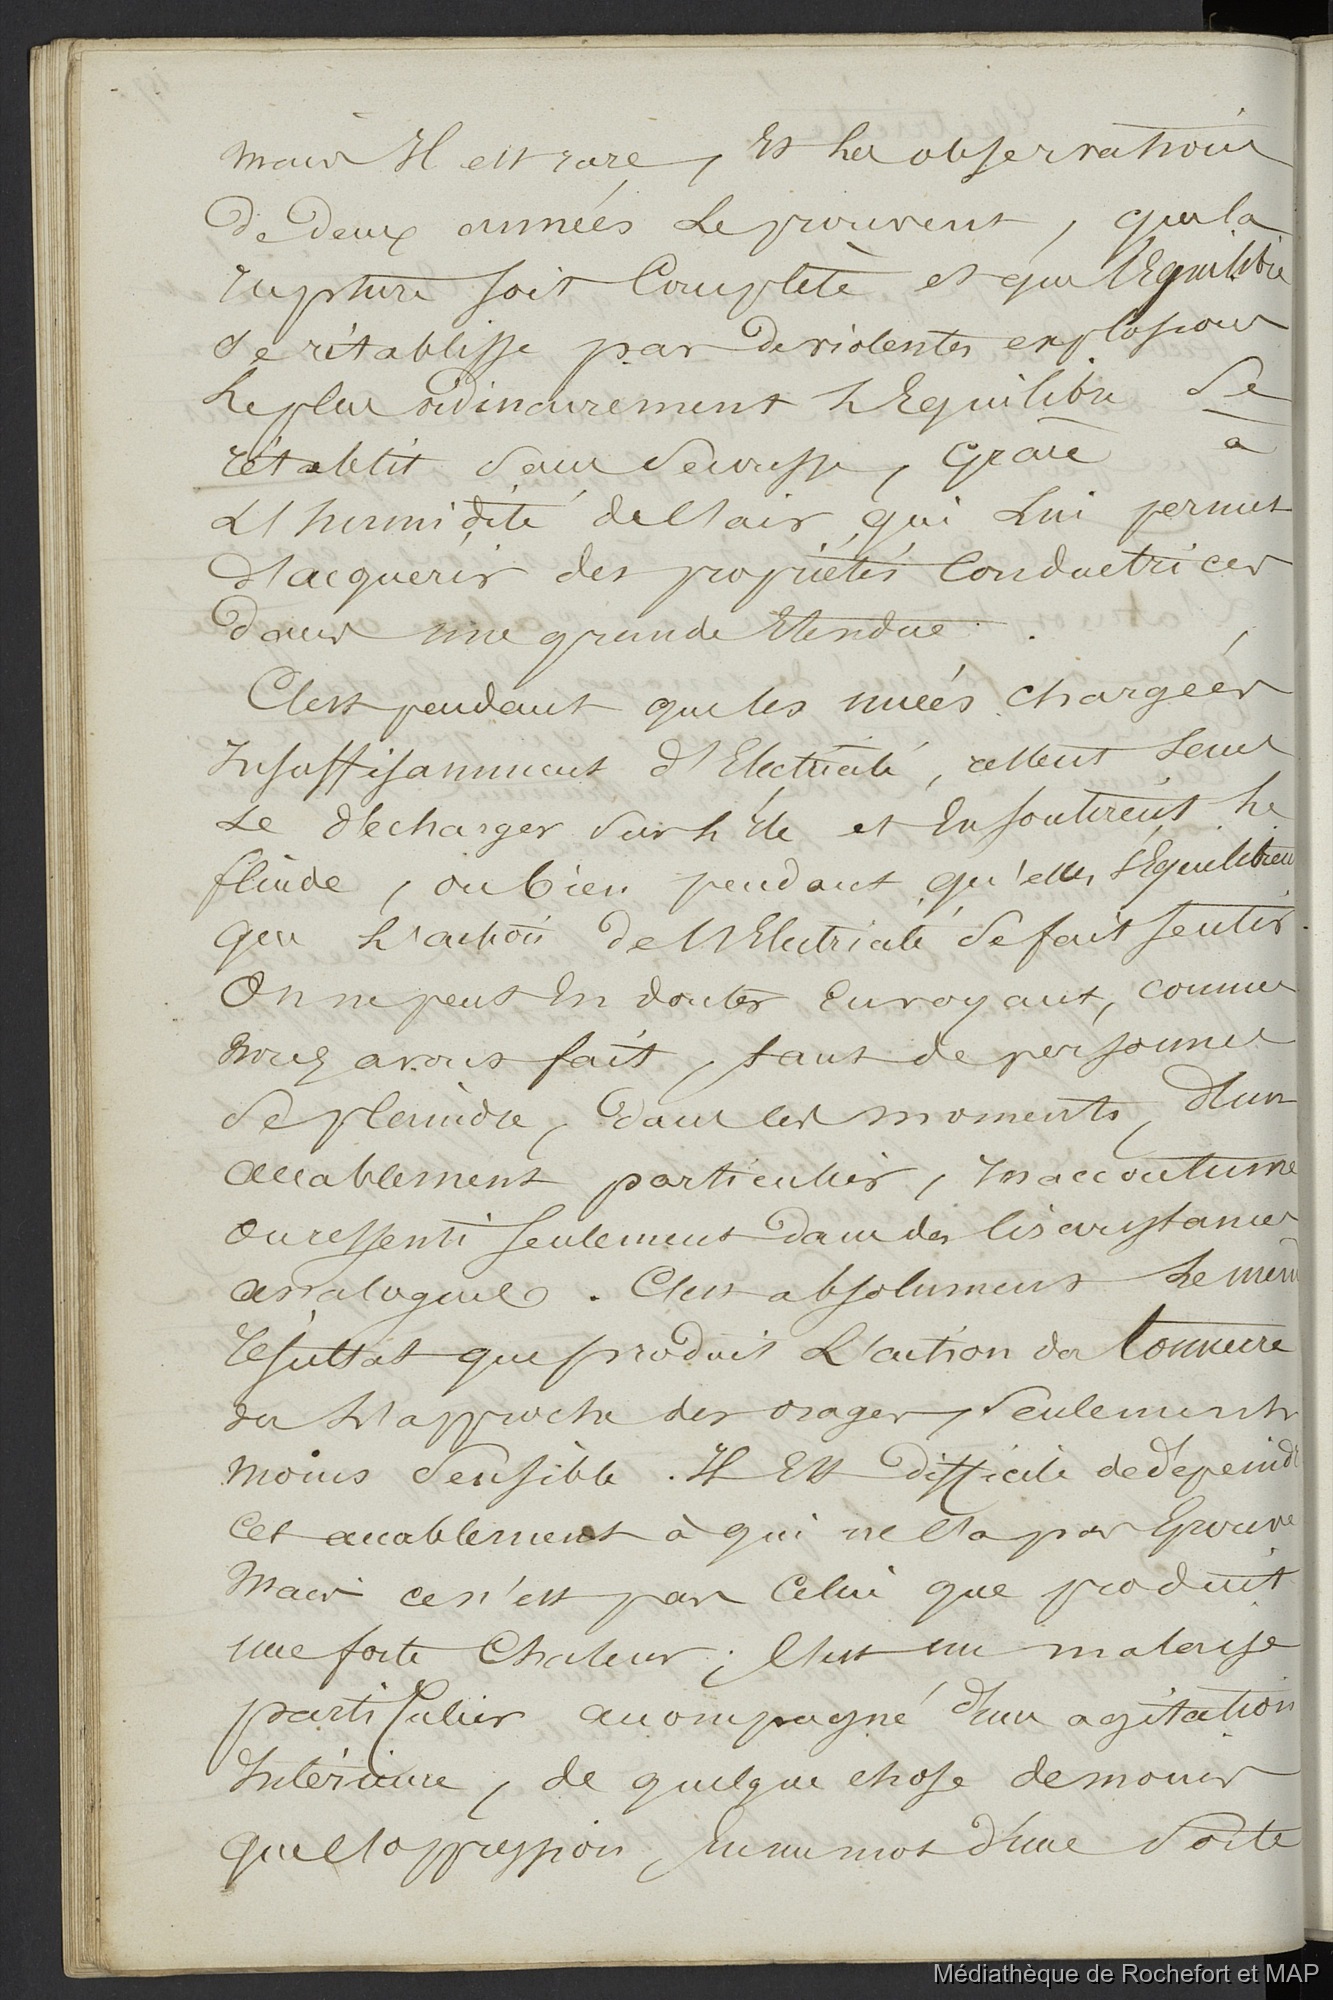 mais Il est rare, Et les observations
De Deux années le prouvent, que la
rupture soit Complète et que l'Equilibre
se rétablisse par de violentes explosions
Le plus ordinairement l'Equilibre se
rétablit sans secousse, Grace à
L'humidité de l'air qui Lui permet
D'acquerir des propriétés Conductrices
dans une grande Etendue.
C'est pendant que les nuées chargées
Insuffisamment d'Electricité, allent
se décharger sur l'Ile et En soutirent le
fluide, ou bien pendant qu'elles s'Equilibrent
que l'action de l'Electricité se fait sentir.
On ne peut En douter En voyant, comme
nous avons fait, tant de personnes
se plaindre, dans les moments, d'un
accablement particulier, Inaccoutumé
ou ressenti seulement dans des Circonstances
analogues. C'est absolument le même
résultat que produit L'action du tonnerre
ou l'approche des orages, seulement
moins sensible. Il Est difficile de dépeindre
cet accablement à qui ne l'a pas Eprouvé
Mais ce n'est pas Celui que produit
une forte Chaleur; C'est un malaise
particulier accompagné d'une agitation
Intérieure, de quelque chose de moins
que l'oppression, En un mot d'une sorte
Médiathèque de Rochefort et MAP